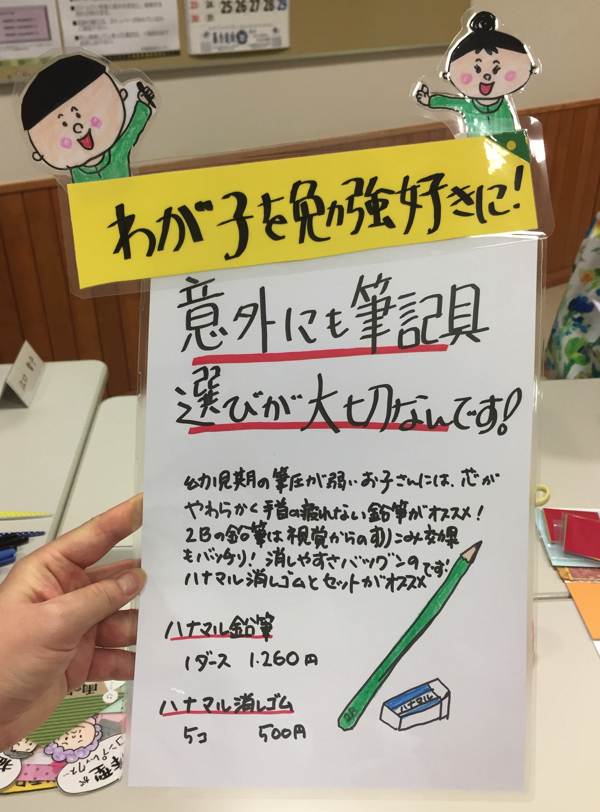 23 24 25 26 27 28 29
30 31
わが子を勉強好きに!
意外にも筆記具
選びが大切なんです!
幼児期の筆圧が弱いお子さんには、芯が
やわらかく手首の疲れない鉛筆がオススメ!
2Bの鉛筆は視覚からのすりこみ効果
もバッチリ! 消しやすさバツグンのです!
ハナマル消しゴムとセットがオススメ
ハナマル鉛筆
1ダース 1.260円
ハナマル消しゴム
5コ 500円
2B
ハナマル
体型が
コンプレックス…